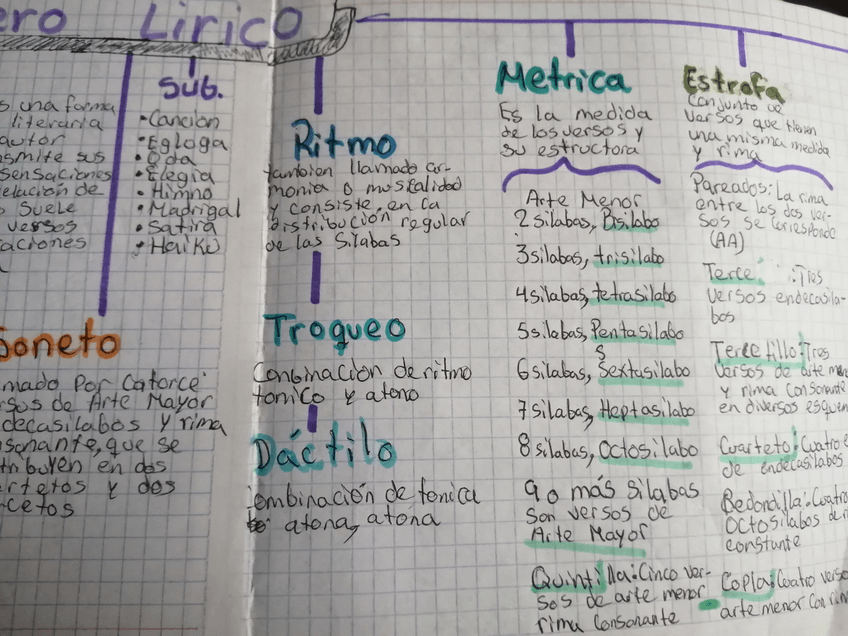 ero Lirico
s una forma
literaria
autor
smite sus
sensaciones
elución de
o suele
versos
aciones
Soneto
mado por Catorce
rsos de Arte Mayor
decasilabos y rima
nsonante, que se
tribuyen en dos
rtetos y dos
cetos
Sub.
• Canción
• Egloga
• Oda
• Elegia
• Himno
• Madrigal
• Satira
• Haikú
Ritmo
tambien llamado ar-
monia o musicalidad
y consiste, en la
distribución regular
de las Silabas
Troqueo
Conbinación de ritmo
tonico y atono
Dáctilo
Combinación de tonica
atona, atona
Metrica
Es la medida
de los versos y
su estructora
Arte Menor
2 silabas, Bisilabo
3 silabas, trisilabo
4 silabas, tetrasilabo
5 silabas, Pentasilabo
6 silabas, Sextasilabo
7 silabas, Heptasilabo
8 silabas, Octosilabo
9 o más silabas
son versos de
Arte Mayor
Quintilla: Cinco ver-
sos de arte menor
rima consonante
Estrofa
Conjunto de
versos que tienen
una misma medida
y rima
Pareados: La rima
entre los dos ver-
sos se corresponde
(AA)
Terce :Tres
versos endecasila-
bos
Tercetillo: Tres
versos de arte men
y rima consonante
en diversos esquem
Cuarteto: Cuatro
de endecasilabos
Redondilla: Cuatro
Octosilabos de ri
constante
Copla: Cuatro verso
arte menor con rim